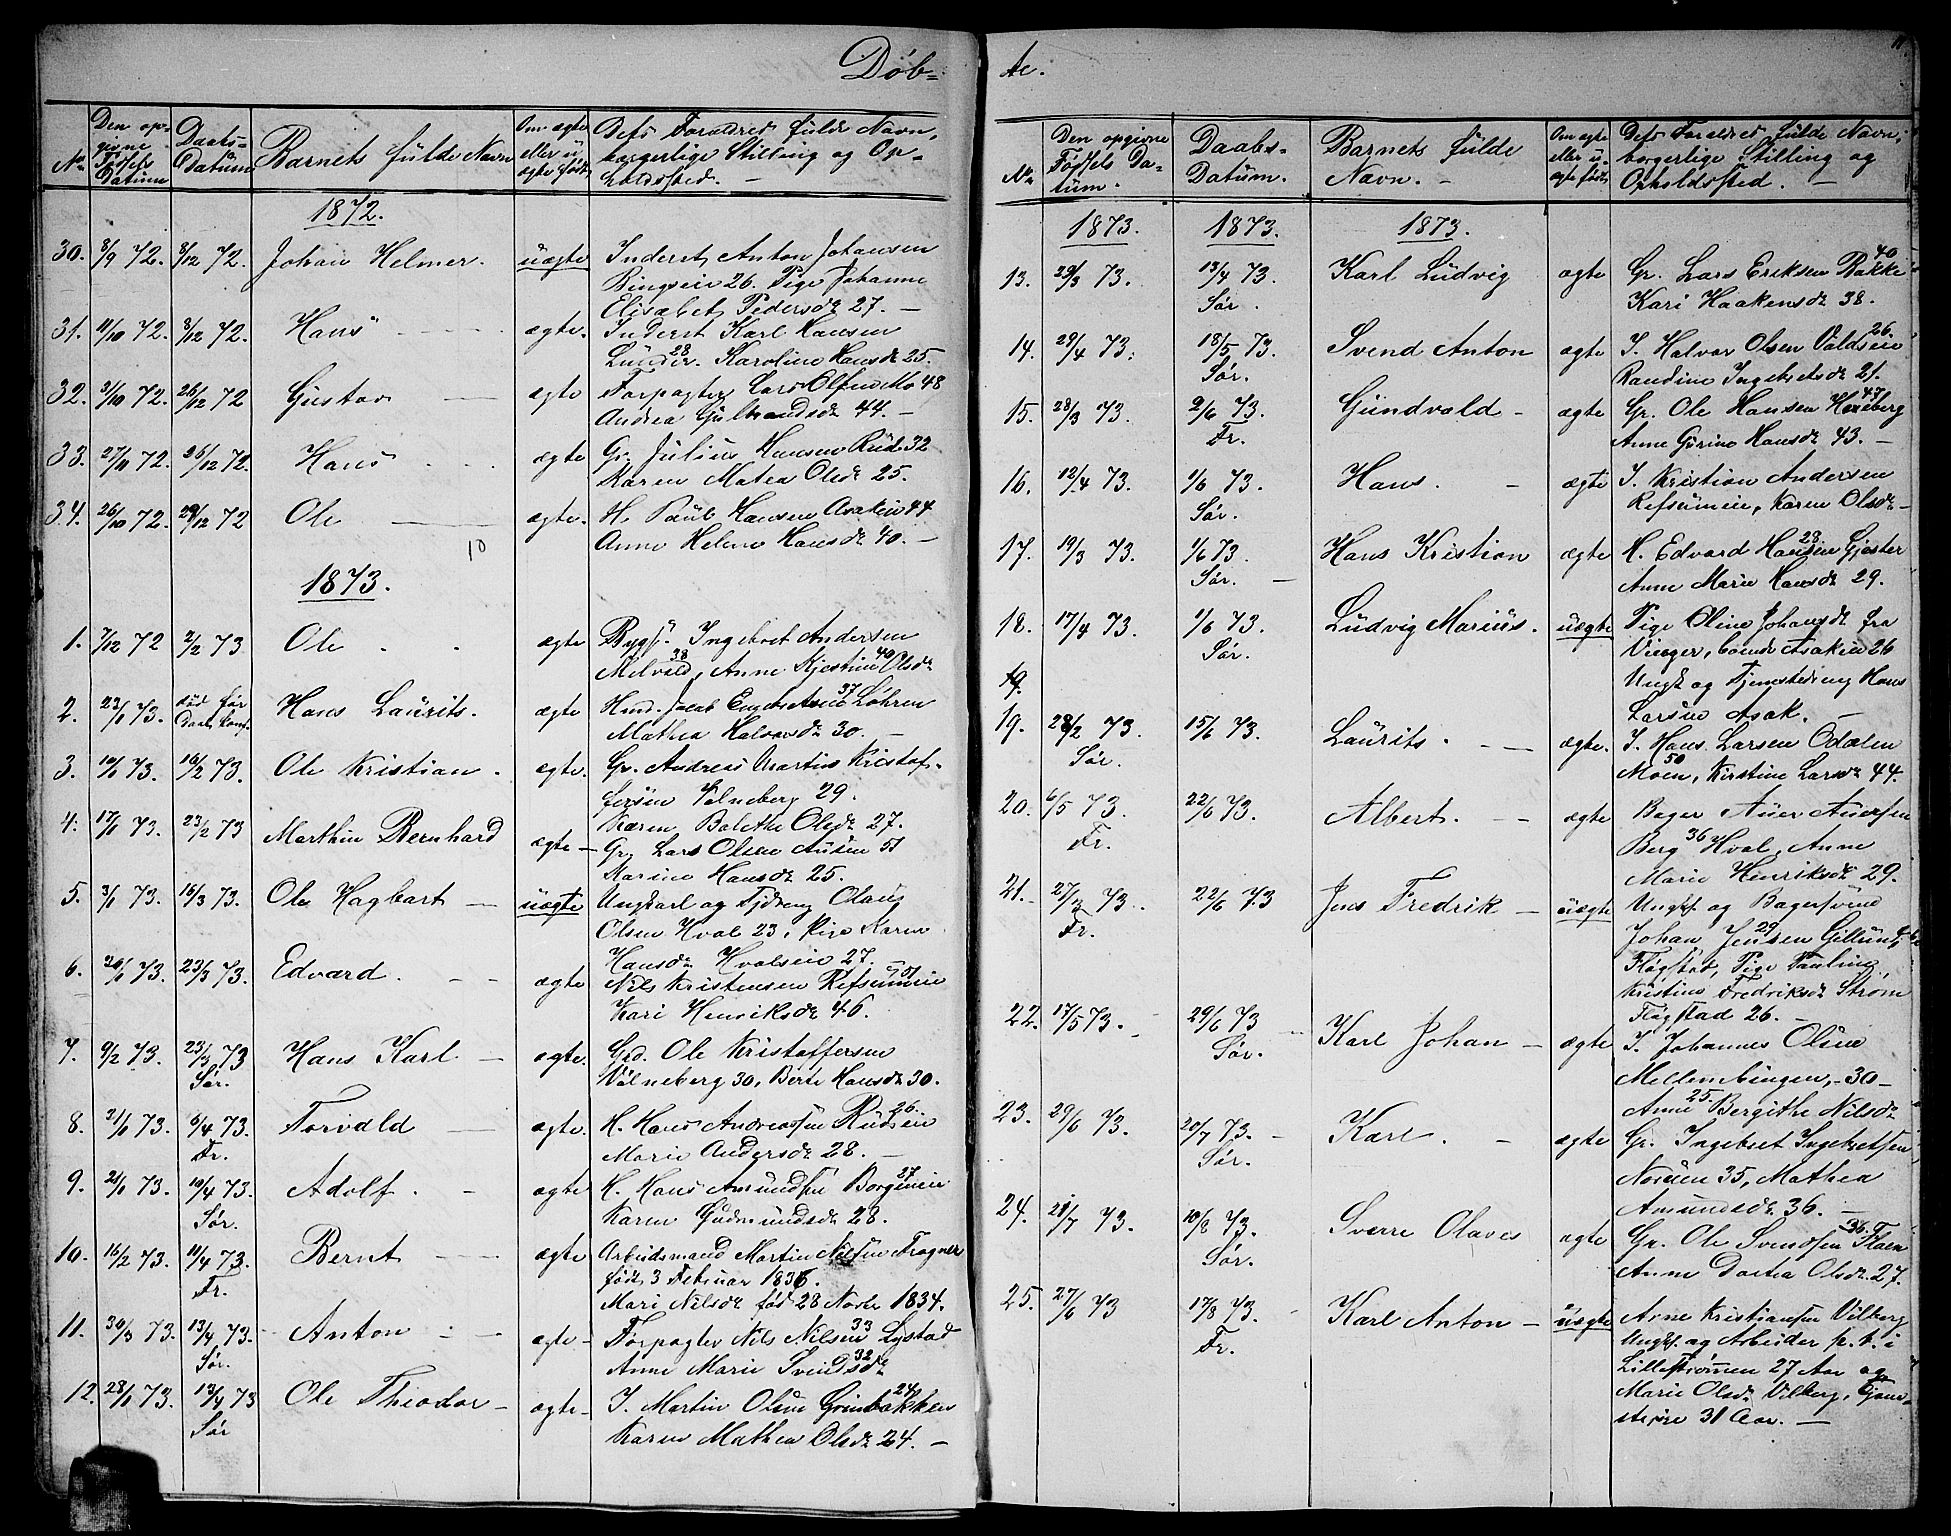 Døb-
No
Den op-
givne
Fødsels
Datum
Daabs-
Datum
Barnets fulde Navn
Om ægte
eller u-
ægte født
Dets Forældres fulde Navn,
borgerlige Stilling og Op-
holdssted. —
1872.
30. 8/9 72. 8/12 72. Johan Helmer. uægte Inderst Anton Johansen
Bingseie 26. Pige Johanne
Elisabet Pedersdr 27. —
31. 11/10 72. 8/12 72. Hans ægte. Inderst Karl Hansen
Lunder 28. Karoline Hansdr 25.
32. 3/10 72. 26/12 72 Gustav ægte Forpagter Lars Olsen Mo 48
Andrea Gulbrandsdr 44. —
33. 27/11 72. 26/12 72. Hans ægte Gr. Julius Hansen Rud 32
Karen Matea Olsdr 25.
34. 26/10 72. 29/12 72 Ole ægte. H. Paul Hansen Asakeie 44
Anne Helene Hansdr 40. —
10
1873.
1. 7/12 72 2/2 73 Ole ægte Bygs. Ingebret Andersen
Milvold 38, Anne Kjerstine Olsdr 40
2. 23/1 73. død før
Daab Hans Laurits. ægte Hmd. Jacob Løhren 37
Mathea Halvorsdr 30. —
3. 10/1 73. 16/2 73. Ole Kristian. ægte. Gr. Andreas Martin Kristof-
fersen Valneberg 29.
Karen Bolethe Olsdr 27.
4. 17/1 73. 23/2 73 Marthin Bernhard ægte — Gr. Lars Olsen Ausen 51
Karine Hansdr 25.
5. 3/1 73. 16/3 73. Ole Hagbart — uægte Ungkarl og Tjdreng Olaus
Olsen Hval 23, Pige Karen
Hansdr Hvalseie 27.
6. 20/1 73. 23/3 73. Edvard. ægte Nils Kristensen Refsumeie 51
Kari Henriksdr 46.
7. 9/2 73. 23/3 73
Sør. Hans Karl — ægte. Grd. Ole Kristoffersen
Valneberg 30, Berte Hansdr 30.
8. 21/1 73. 6/4 73.
Fr. Torvald ægte. H. Hans Andreassen Rudseie 26.
Marie Andersdr 28. —
9. 21/1 73. 10/4 73.
Sør. Adolf. ægte H. Hans Amundsen Borgeneie 27
Karen Gudmundsdr 28.
10. 16/2 73. 11/4 73.
Fr. Bernt ægte Arbeidsmand Martin Nilsen Frogner
født 3 Februar 1836.
Mari Nilsdr fød 28 Novbr 1834.
11. 30/3 73. 13/4 73.
Sør. Anton ægte — Forpagter Nils Nilsen 33 Lystad
Anne Marie Svendsdr 32
12. 28/1 73. 13/4 73
Sør Ole Theodor — ægte — I. Martin Olsen Grinbakken 24
Karen Mathea Olsdr 24. —
te.
No
Den opgivne
Fødsels Da-
tum.
Daabs-
Datum.
Barnets fulde
Navn. —
Om ægte
eller u-
ægte født
Dets Forældres fulde Navn,
borgerlige Stilling og
Opholdssted. —
1873. 1873. 1873.
13. 29/3 73. 13/4 73.
Sør. Karl Ludvig ægte Gr. Lars Eriksen Rakke 40
Kari Haakensdr 38.
14. 29/4 73. 18/5 73.
Sør. Svend Anton ægte I. Halvor Olsen Valdseie 26.
Randine Ingebretsdr 21.
15. 28/3 73. 2/6 73.
Fr. Gundvald — ægte Gr. Ole Hansen Hexeberg 47
Anne Gurine Hansdr 43. —
16. 12/4 73. 1/6 73.
Sør. Hans. — ægte I. Kristian Andersen
Refsumeie, Karen Olsdr —
17. 19/3 73. 1/6 73.
Sør. — Hans Kristian ægte H. Edvard Hansen 28 Gjester
Anne Marie Hansdr 29.
18. 17/4 73. 1/6 73.
Sør. Ludvig Marius. uægte Pige Oline Johansdr fra
Vinger, boende Asakeie 26
19. Ungk og Tjenestedreng Hans
Larsen Asak. —
19. 28/2 73.
Sør. 15/6 73. Laurits. ægte. I. Hans Larsen Odalen
Moen 50, Kirstine Larsdr 44.
20. 6/5 73.
Fr. 22/6 73. Albert. ægte Bager Auer Auersen
Berg 36 Hval, Anne
Marie Henriksdr 29.
21. 27/3 73.
Fr. 22/6 73 Jens Fredrik — uægte Ungk. og Bagersvend
Johan Jensen 29
Flogstad, Pige Pauline
Kristine Fredriksdr Strøm
Flogstad 26. —
22. 17/5 73. 29/6 73
Sør. Karl Johan — ægte I. Johannes Olsen
Mellembingen, 30 —
Anne Bergithe Nilsdr 25.
23. 29/6 73. 20/7 73.
Sør. Karl. — ægte Gr. Ingebret Ingebretsen
Nordeen 35, Mathea
Amundsdr 36. —
24. 21/7 73. 10/8 73.
Sør. Sverre Olaves ægte Gr. Ole Svendsen 36. Flaen
Anne Dortea Olsdr. 27.
25. 27/6 73 17/8 73.
Fr. Karl Anton — uægte Arne Kristiansen Vilberg
Ungk. og Arbeider p. t. i
Lillestrømen 27 Aar og
Marie Olsdr Vilberg, Tjene-
stepige 31 Aar. —